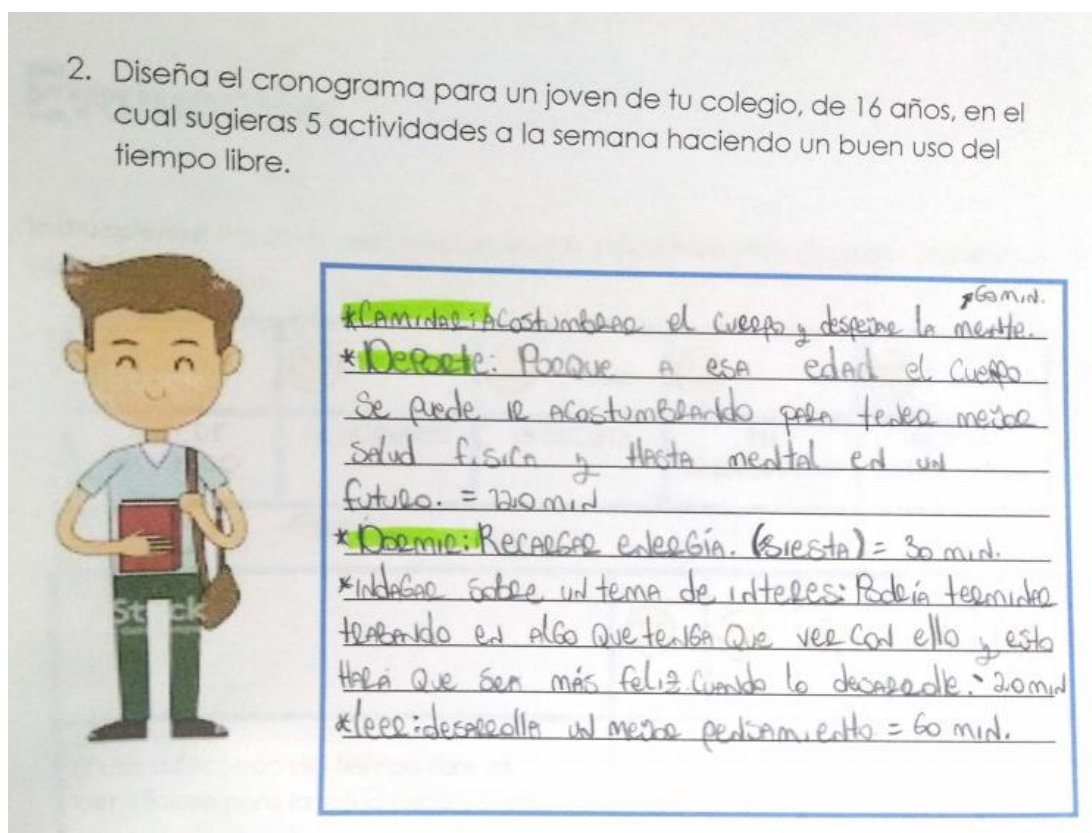 2. Diseña el cronograma para un joven de tu colegio, de 16 años, en el
cual sugieras 5 actividades a la semana haciendo un buen uso del
tiempo libre.
60 min.
*CAMINAR: ACostumbrar el cuerpo y despeine la mente.
*DePorte: PorQue A esA edAd el Cuerpo
Se puede iR ACostumBRANdo pARA teNeR mejor
SAlud fisicA y HAstA meNtAl eN uN
futuRo. = 120 miN
*DoRmiR: ReCARGAR eNeRGía. (SiestA) = 30 miN.
*INdAGAR sobRe uN temA de iNteRes: PodRíA teRmiNAR
tRABANdo eN AlGo Que teNGA Que veR CoN ello y esto
HARÁ Que SeA más feliz CuANdo lo desARRolle. - 20 miN
*leeR: desARRollA uN mejoR peNsAmieNto = 60 miN.
Stock